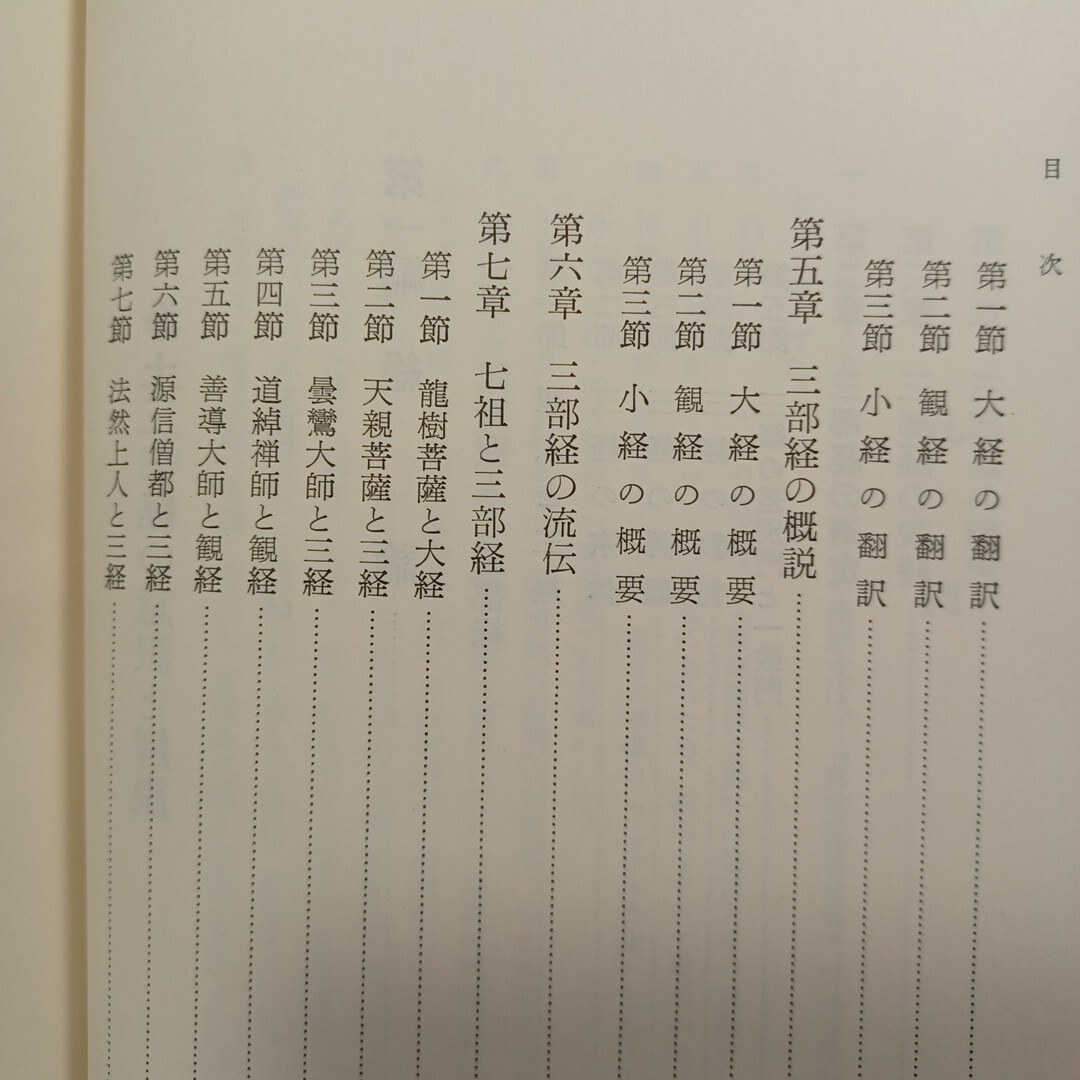 目次
第一節 大経の翻訳
第二節 観経の翻訳
第三節 小経の翻訳
第五章 三部経の概説
第一節 大経の概要
第二節 観経の概要
第三節 小経の概要
第六章 三部経の流伝
第七章 七祖と三部経
第一節 龍樹菩薩と大経
第二節 天親菩薩と三経
第三節 曇鸞大師と三経
第四節 道綽禅師と観経
第五節 善導大師と観経
第六節 源信僧都と三経
第七節 法然上人と三経